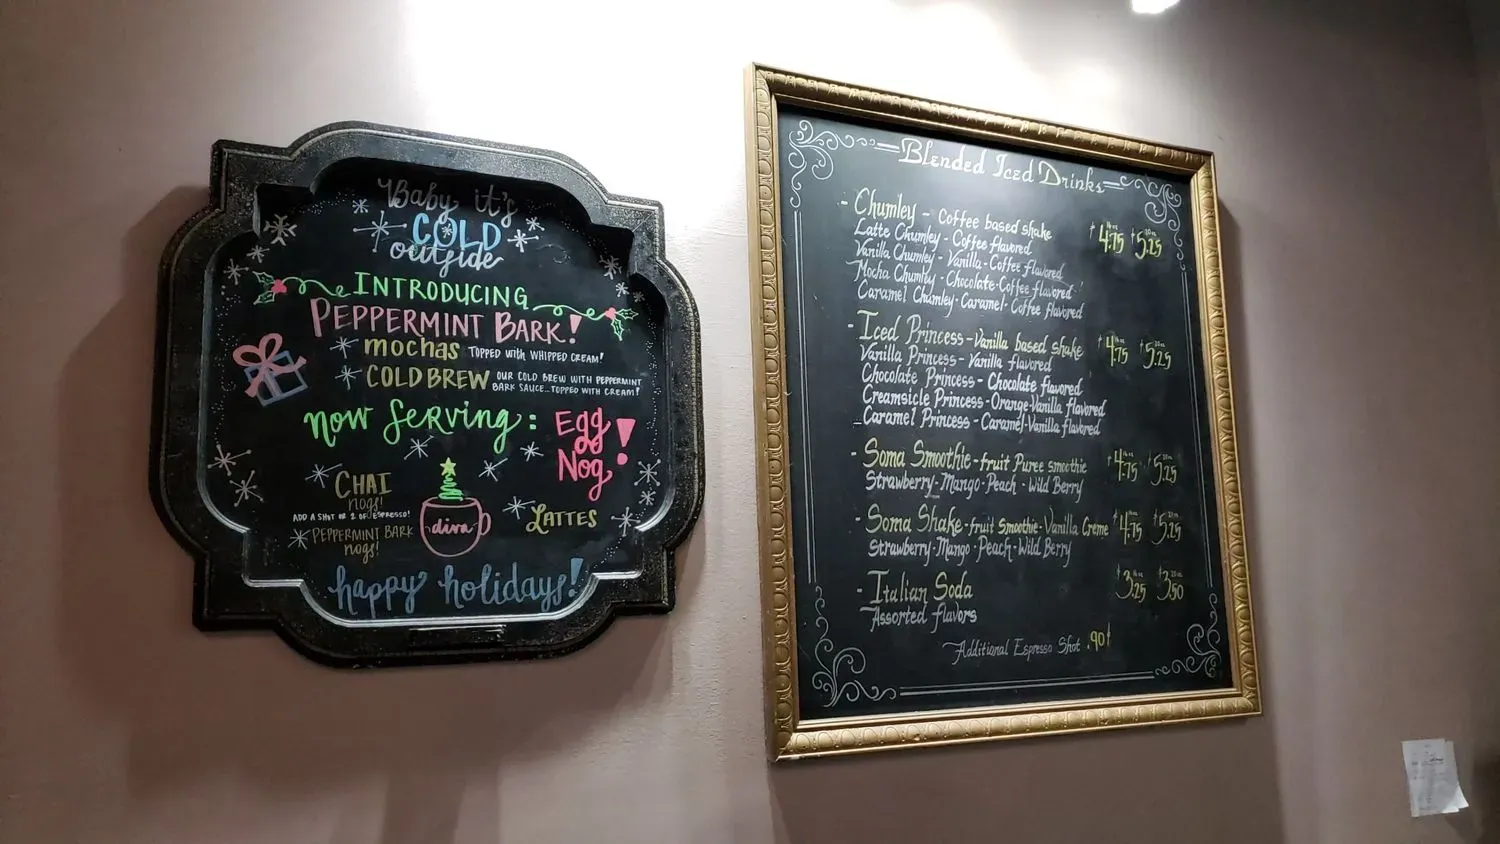 Baby it's
COLD
outside
INTRODUCING
PEPPERMINT BARK!
mochas TOPPED with WHIPPED CREAM!
COLD BREW OUR COLD BREW WITH PEPPERMINT
BARK SAUCE... TOPPED WITH CREAM!
now serving: Egg
Nog!
CHAI
nogs!
ADD A SHOT OR 2 OF ESPRESSO!
PEPPERMINT BARK
nogs!
diva
LATTES
happy holidays!
Blended Iced Drinks
- Chumley - Coffee based shake $4.75 $5.25
Latte Chumley - Coffee flavored
Vanilla Chumley - Vanilla - Coffee flavored
Mocha Chumley - Chocolate - Coffee flavored
Caramel Chumley - Caramel - Coffee flavored
- Iced Princess - Vanilla based shake $4.75 $5.25
Vanilla Princess - Vanilla flavored
Chocolate Princess - Chocolate flavored
Creamsicle Princess - Orange-Vanilla flavored
Caramel Princess - Caramel-Vanilla flavored
- Soma Smoothie - fruit Puree smoothie $4.75 $5.25
Strawberry - Mango - Peach - Wild Berry
- Soma Shake - fruit Smoothie - Vanilla Creme $4.75 $5.25
Strawberry - Mango - Peach - Wild Berry
- Italian Soda $3.25 $3.50
Assorted flavors
Additional Espresso Shot .90¢